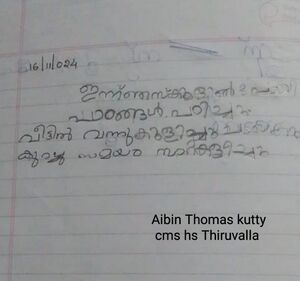 16/11/024
ഇന്ന് ഞാൻ സ്കൂളിൽ പോയി
പാഠങ്ങൾ പഠിച്ചു
വീട്ടിൽ വന്നു കുളിച്ചു
കുറച്ചു സമയം കളിച്ചു
Aibin Thomas kutty
cms hs Thiruvalla